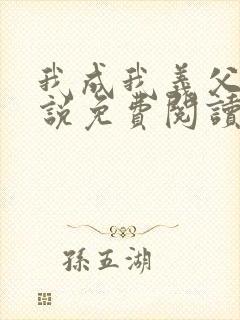 我成我義父
說免費閱讀
孫五湖